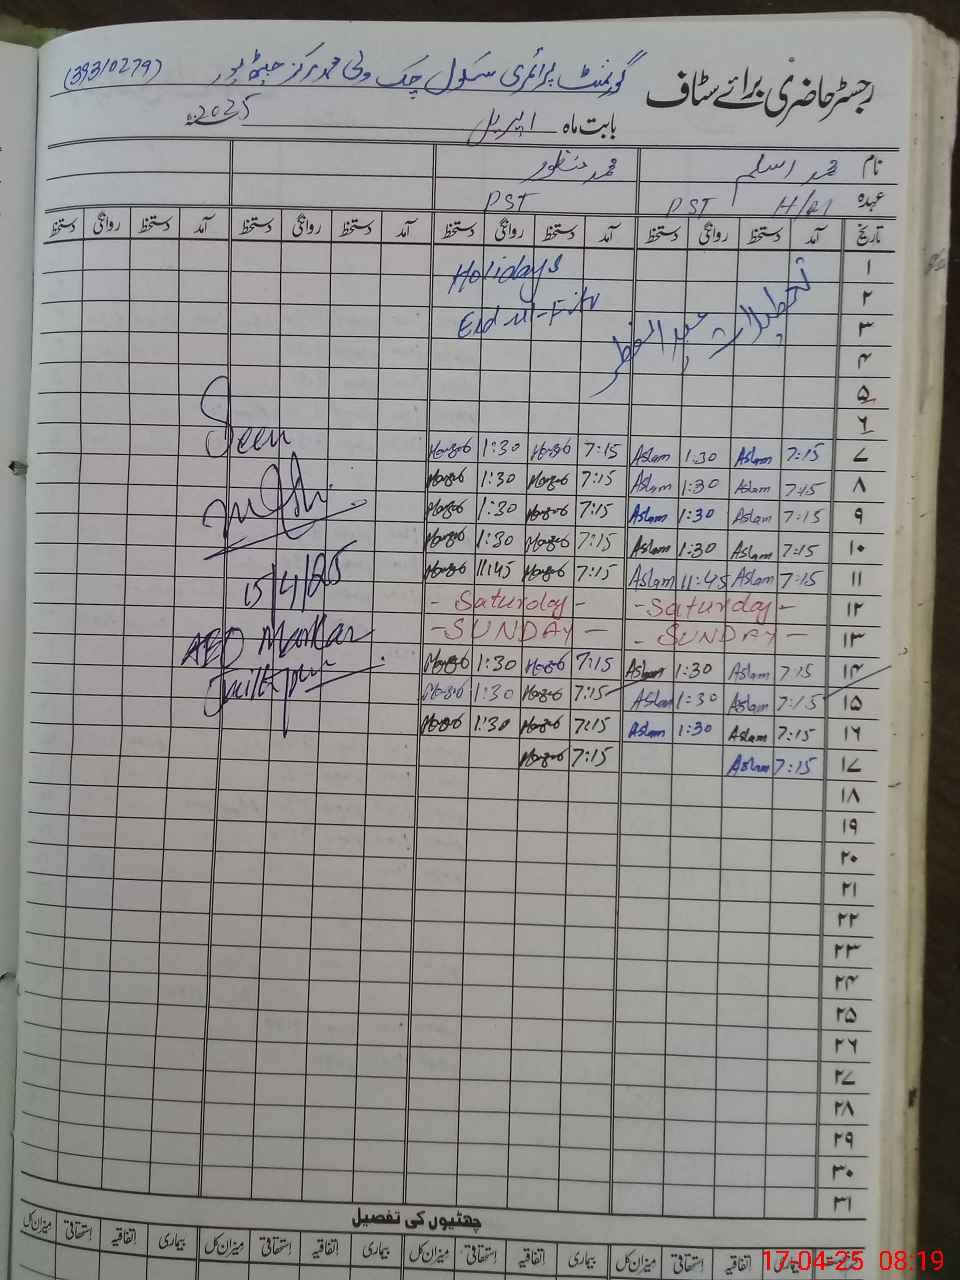 رجسٹر حاضری برائے سٹاف گورنمنٹ پرائمری سکول چک ولی محمد مرکز جیٹھ پور (39310279)
بابت ماہ اپریل 2025ء
نام محمد اسلم محمد منظور
عہدہ H/PST PST
تاریخ آمد دستخط روانگی دستخط آمد دستخط روانگی دستخط آمد دستخط روانگی دستخط آمد دستخط روانگی دستخط
۱ Holidays
۲ تعطیلات عید الفطر
۳ Eid-ul-Fitr
۴
۵
۶
۷ 7:15 Aslam 1:30 Aslam 7:15 1:30
۸ 7:15 Aslam 1:30 Aslam 7:15 1:30
۹ 7:15 Aslam 1:30 Aslam 7:15 1:30
۱۰ 7:15 Aslam 1:30 Aslam 7:15 1:30
۱۱ 7:15 Aslam 11:45 Aslam 7:15 11:45
۱۲ - Saturday - - Saturday -
۱۳ - SUNDAY - - SUNDAY -
۱۴ 7:15 Aslam 1:30 Aslam 7:15 1:30
۱۵ 7:15 Aslam 1:30 Aslam 7:15 1:30
۱۶ 7:15 Aslam 1:30 Aslam 7:15 1:30
۱۷ 7:15 Aslam 7:15
۱۸
۱۹
۲۰
۲۱
۲۲
۲۳
۲۴
۲۵
۲۶
۲۷
۲۸
۲۹
۳۰
۳۱
Seen
15/4/25
AEO Markaz
چھٹیوں کی تفصیل
بیماری اتفاقیہ استحقاقی میزان کل بیماری اتفاقیہ استحقاقی میزان کل بیماری اتفاقیہ استحقاقی میزان کل بیماری اتفاقیہ استحقاقی میزان کل
17-04-25 08:19